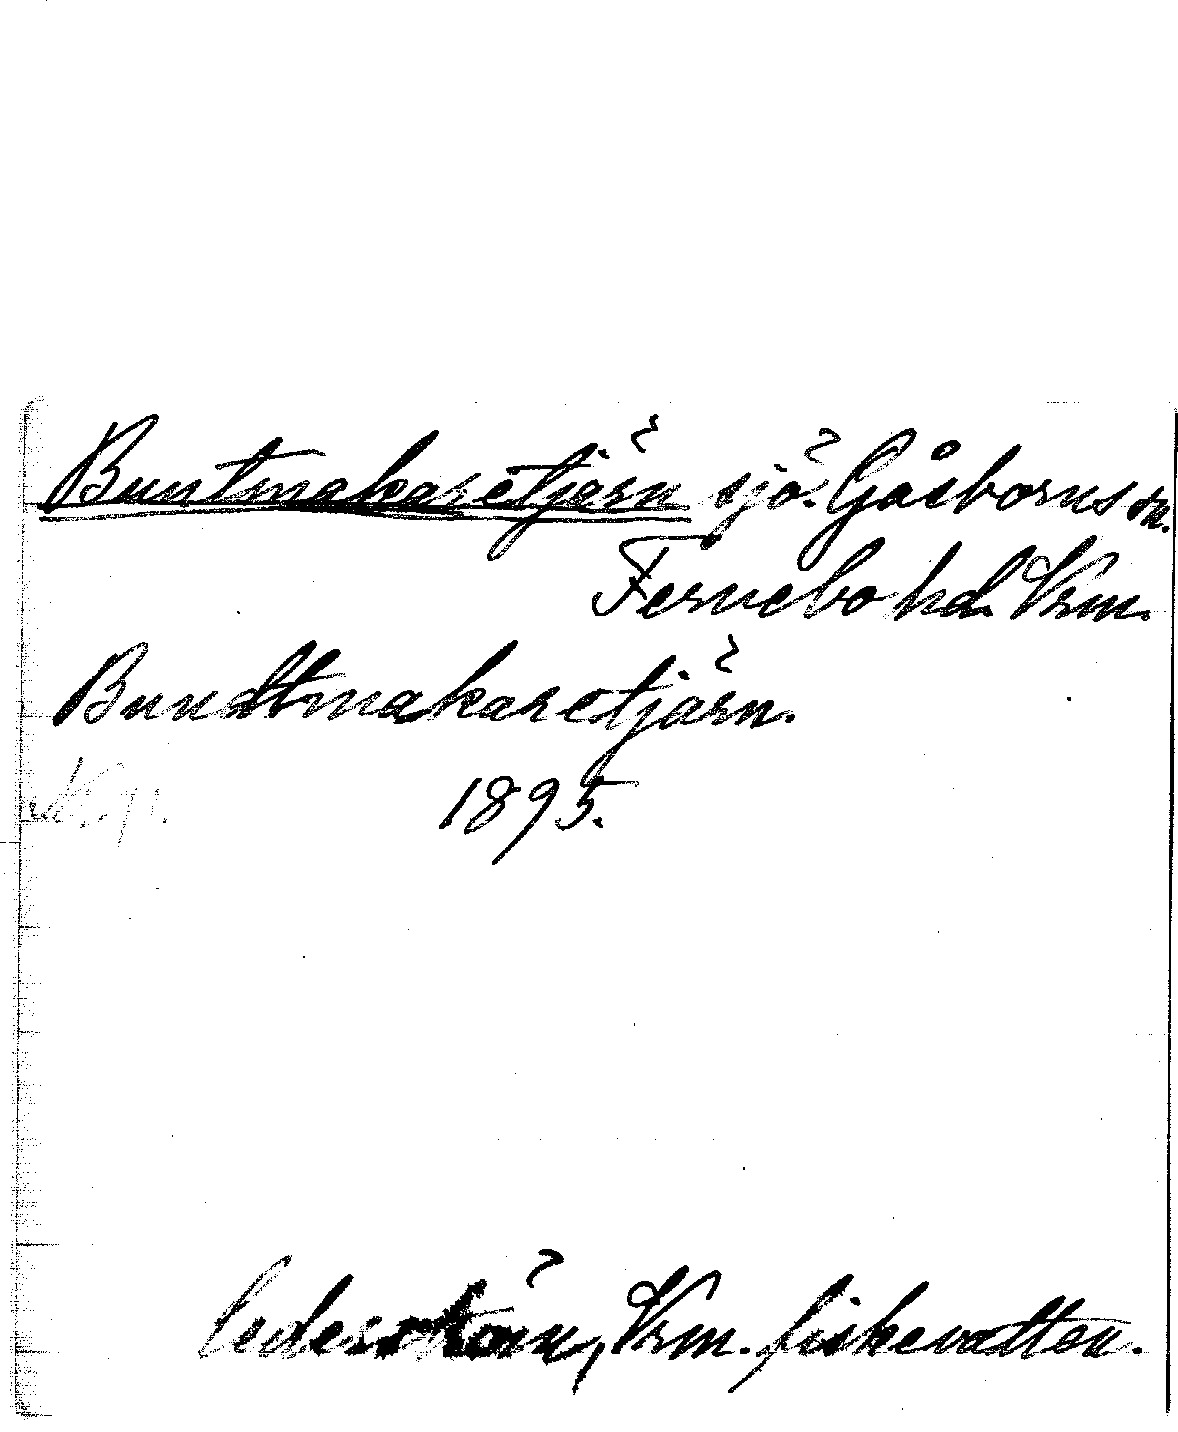 Buntmakaretjärn sjö. Gåsborns sn.
Fernebo hd. Vrm.
Bundtmakaretjärn.
1895.
Cederström, Vrm. fiskevatten.